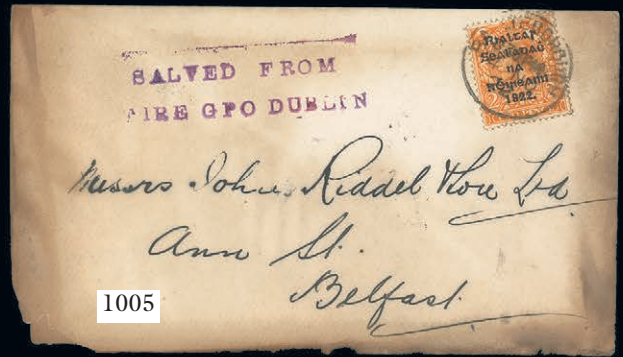 SALVED FROM
FIRE GPO DUBLIN
Rialtas
Sealadac
na
hÉireann
1922.
Messrs John Riddel & Son Ltd
Ann St.
Belfast.
1005